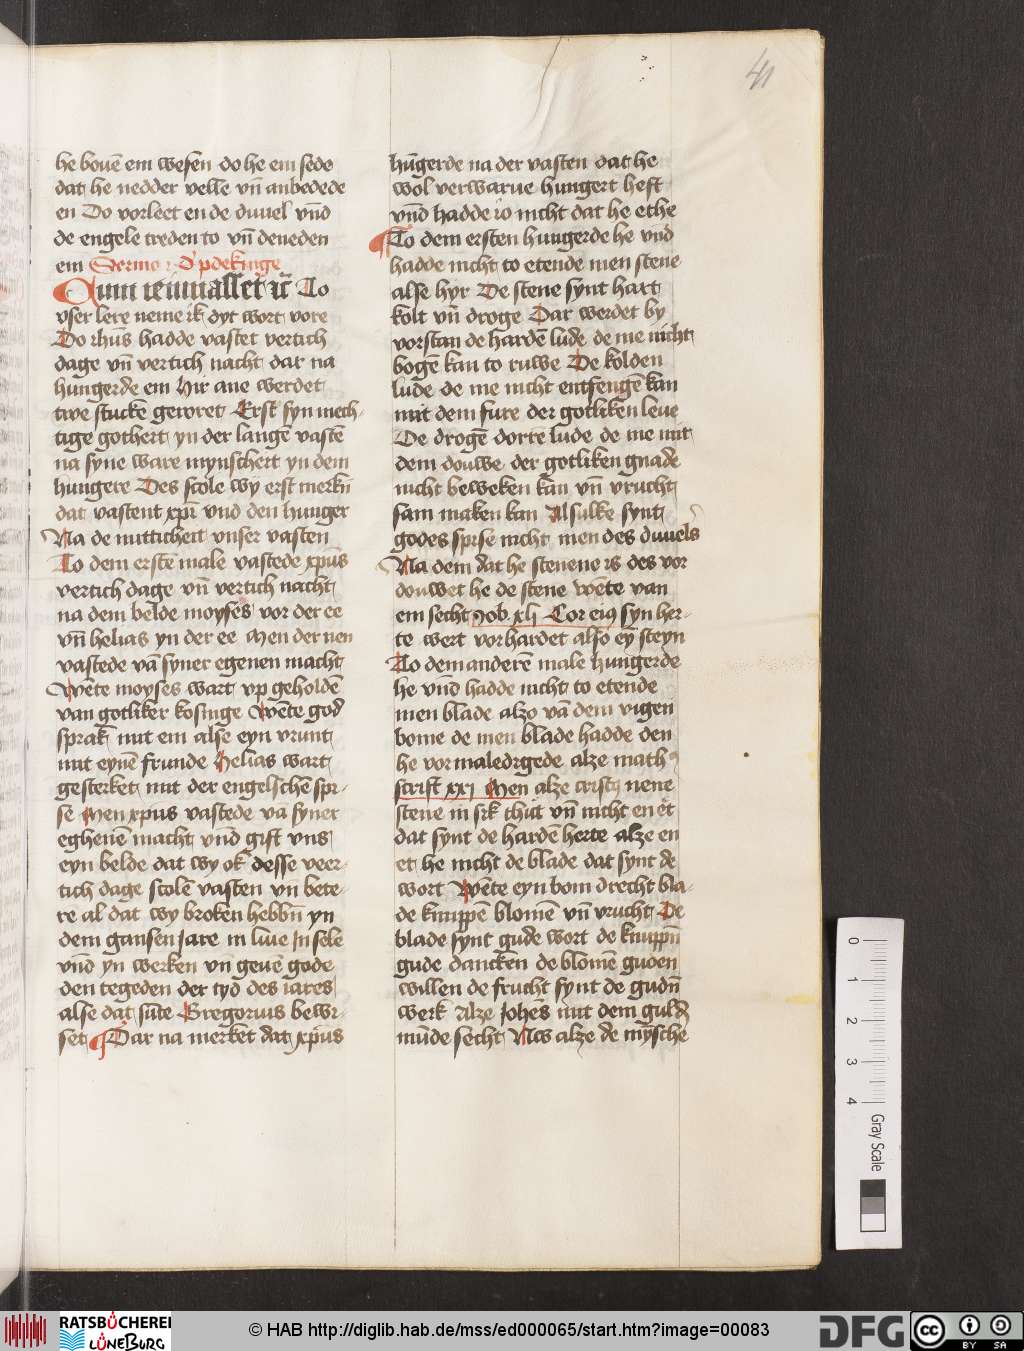 41
he bouē em wesen do he em sede
dat he nedder velle vn̄ anbedede
en Do vorleet en de duuel vnd̄
de engele treden to vn̄ deneden
em Sermo
Cum ieiunasset To
vser lere neme ik dyt wort vore
Do ihūs hadde vastet vertich
dage vn̄ vertich nacht dar na
hungerde em Hir ane werdet
twe stucke geroret Erst syn mech-
tige gotheit yn der langē vastē
na syne ware mynscheit yn dem
hungere Des scole wy erst merkn̄
dat vastent xp̄i vnd den hunger
Na de nutticheit vnser vasten
To dem erstē male vastede xp̄us
vertich dage vn̄ vertich nacht
na dem belde moyses vor der ee
vn̄ helias yn der ee Men der nen
vastede vā syner egenen macht
Wēte moyses wart vp geholdē
van gotliker kosinge Wēte god
sprak mit em alse eyn vrunt
mit eynē frunde Helias wart
gesterket mit der engelschē spi-
se Men xpus vastede vā syner
egheuē macht vnd gift vns
eyn belde dat wy ok desse veer-
tich dage scolē vasten vn bete-
re al dat wy broken hebbn̄ yn
dem gansen Jare in liue in sele
vnd̄ yn werken vn̄ geuē gode
den tegeden der tyd des iares
alse dat sūte Gregorius bewi-
set Dar na merket dat xp̄us
hūgerde na der vasten dat he
wol verwarue hungert heft
vnd̄ hadde io nicht dat he ethe
To dem ersten hungerde he vnd
hadde nicht to etende men stene
alse hyr De stene synt hart
kolt vn̄ droge Dar werdet by
vorstan de hardē lude de me nicht
bogē kan to ruwe De kolden
lude de me nicht entfengē kan
mit dem fure der gotliken leue
De drogē dorre lude de me mit
dem douwe der gotliken gnade
nicht beweken kan vn̄ vrucht
sam maken kan Al sulke synt
godes spise nicht men des duuels
Na dem dat he stenene is des vor
douwet he de stene wēte van
em secht Job xli Cor eiꝯ syn her-
te wert vorhardet also eȳ steyn
To dem anderē male hungerde
he vnd̄ hadde nicht to etende
men blade alzo vā dem vigen
bome de men blade hadde den
he vormaledigede alze mathꝯ
scrift xxi Men alze cristꝯ nene
stene in sik thut vn̄ nicht en et
dat synt de hardē herte alze en
et he nicht de blade dat synt de
wort Wēte eyn bom drecht bla-
de knuppē blomē vn̄ vrucht De
blade synt gude wort de knuppn̄
gude dancken de blomē guden
willen de frucht synt de gudn̄
werk Alze Johēs mit dem guldē
mūde secht Nw alze de mȳsche
0
1
2
3
4
Gray Scale
RATSBÜCHEREI
LÜNEBURG
© HAB http://diglib.hab.de/mss/ed000065/start.htm?image=00083
DFG
cc BY SA